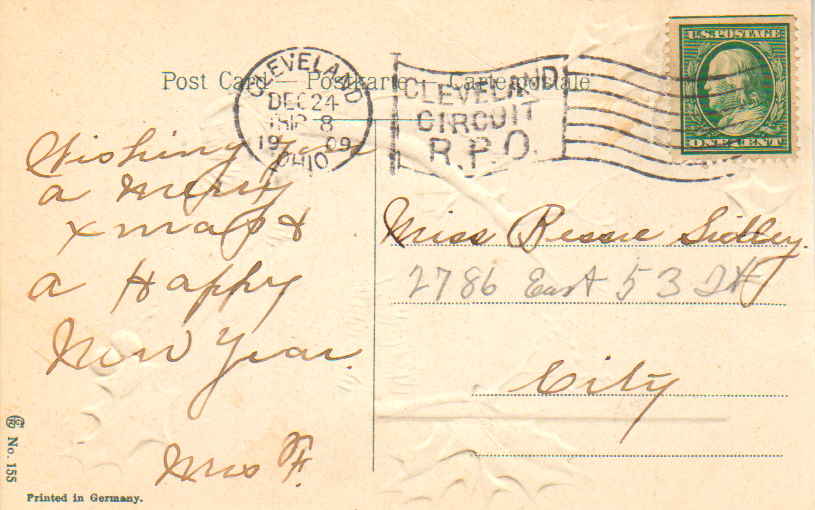 Post Card — Postkarte — Carte postale
CLEVELAND
DEC 24
8
1909
OHIO
CLEVELAND
CIRCUIT
R.P.O.
U.S. POSTAGE
ONE CENT
Wishing you
a Merry
xmas &
a Happy
New Year.
Mrs F.
Miss Bessie Sidley.
2786 East 53 St
City
No. 155
Printed in Germany.